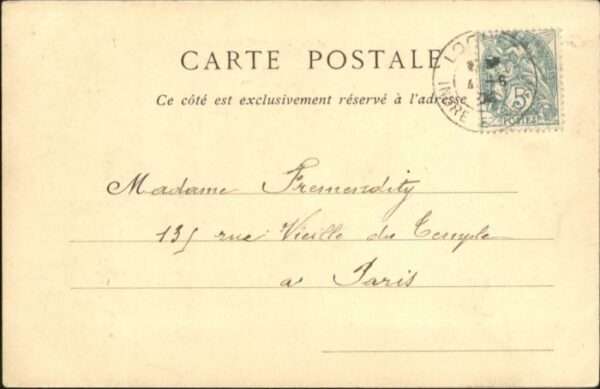 CARTE POSTALE
Ce côté est exclusivement réservé à l'adresse
5
POSTES
INDRE
Madame
135 rue Vieille du Temple
a Paris